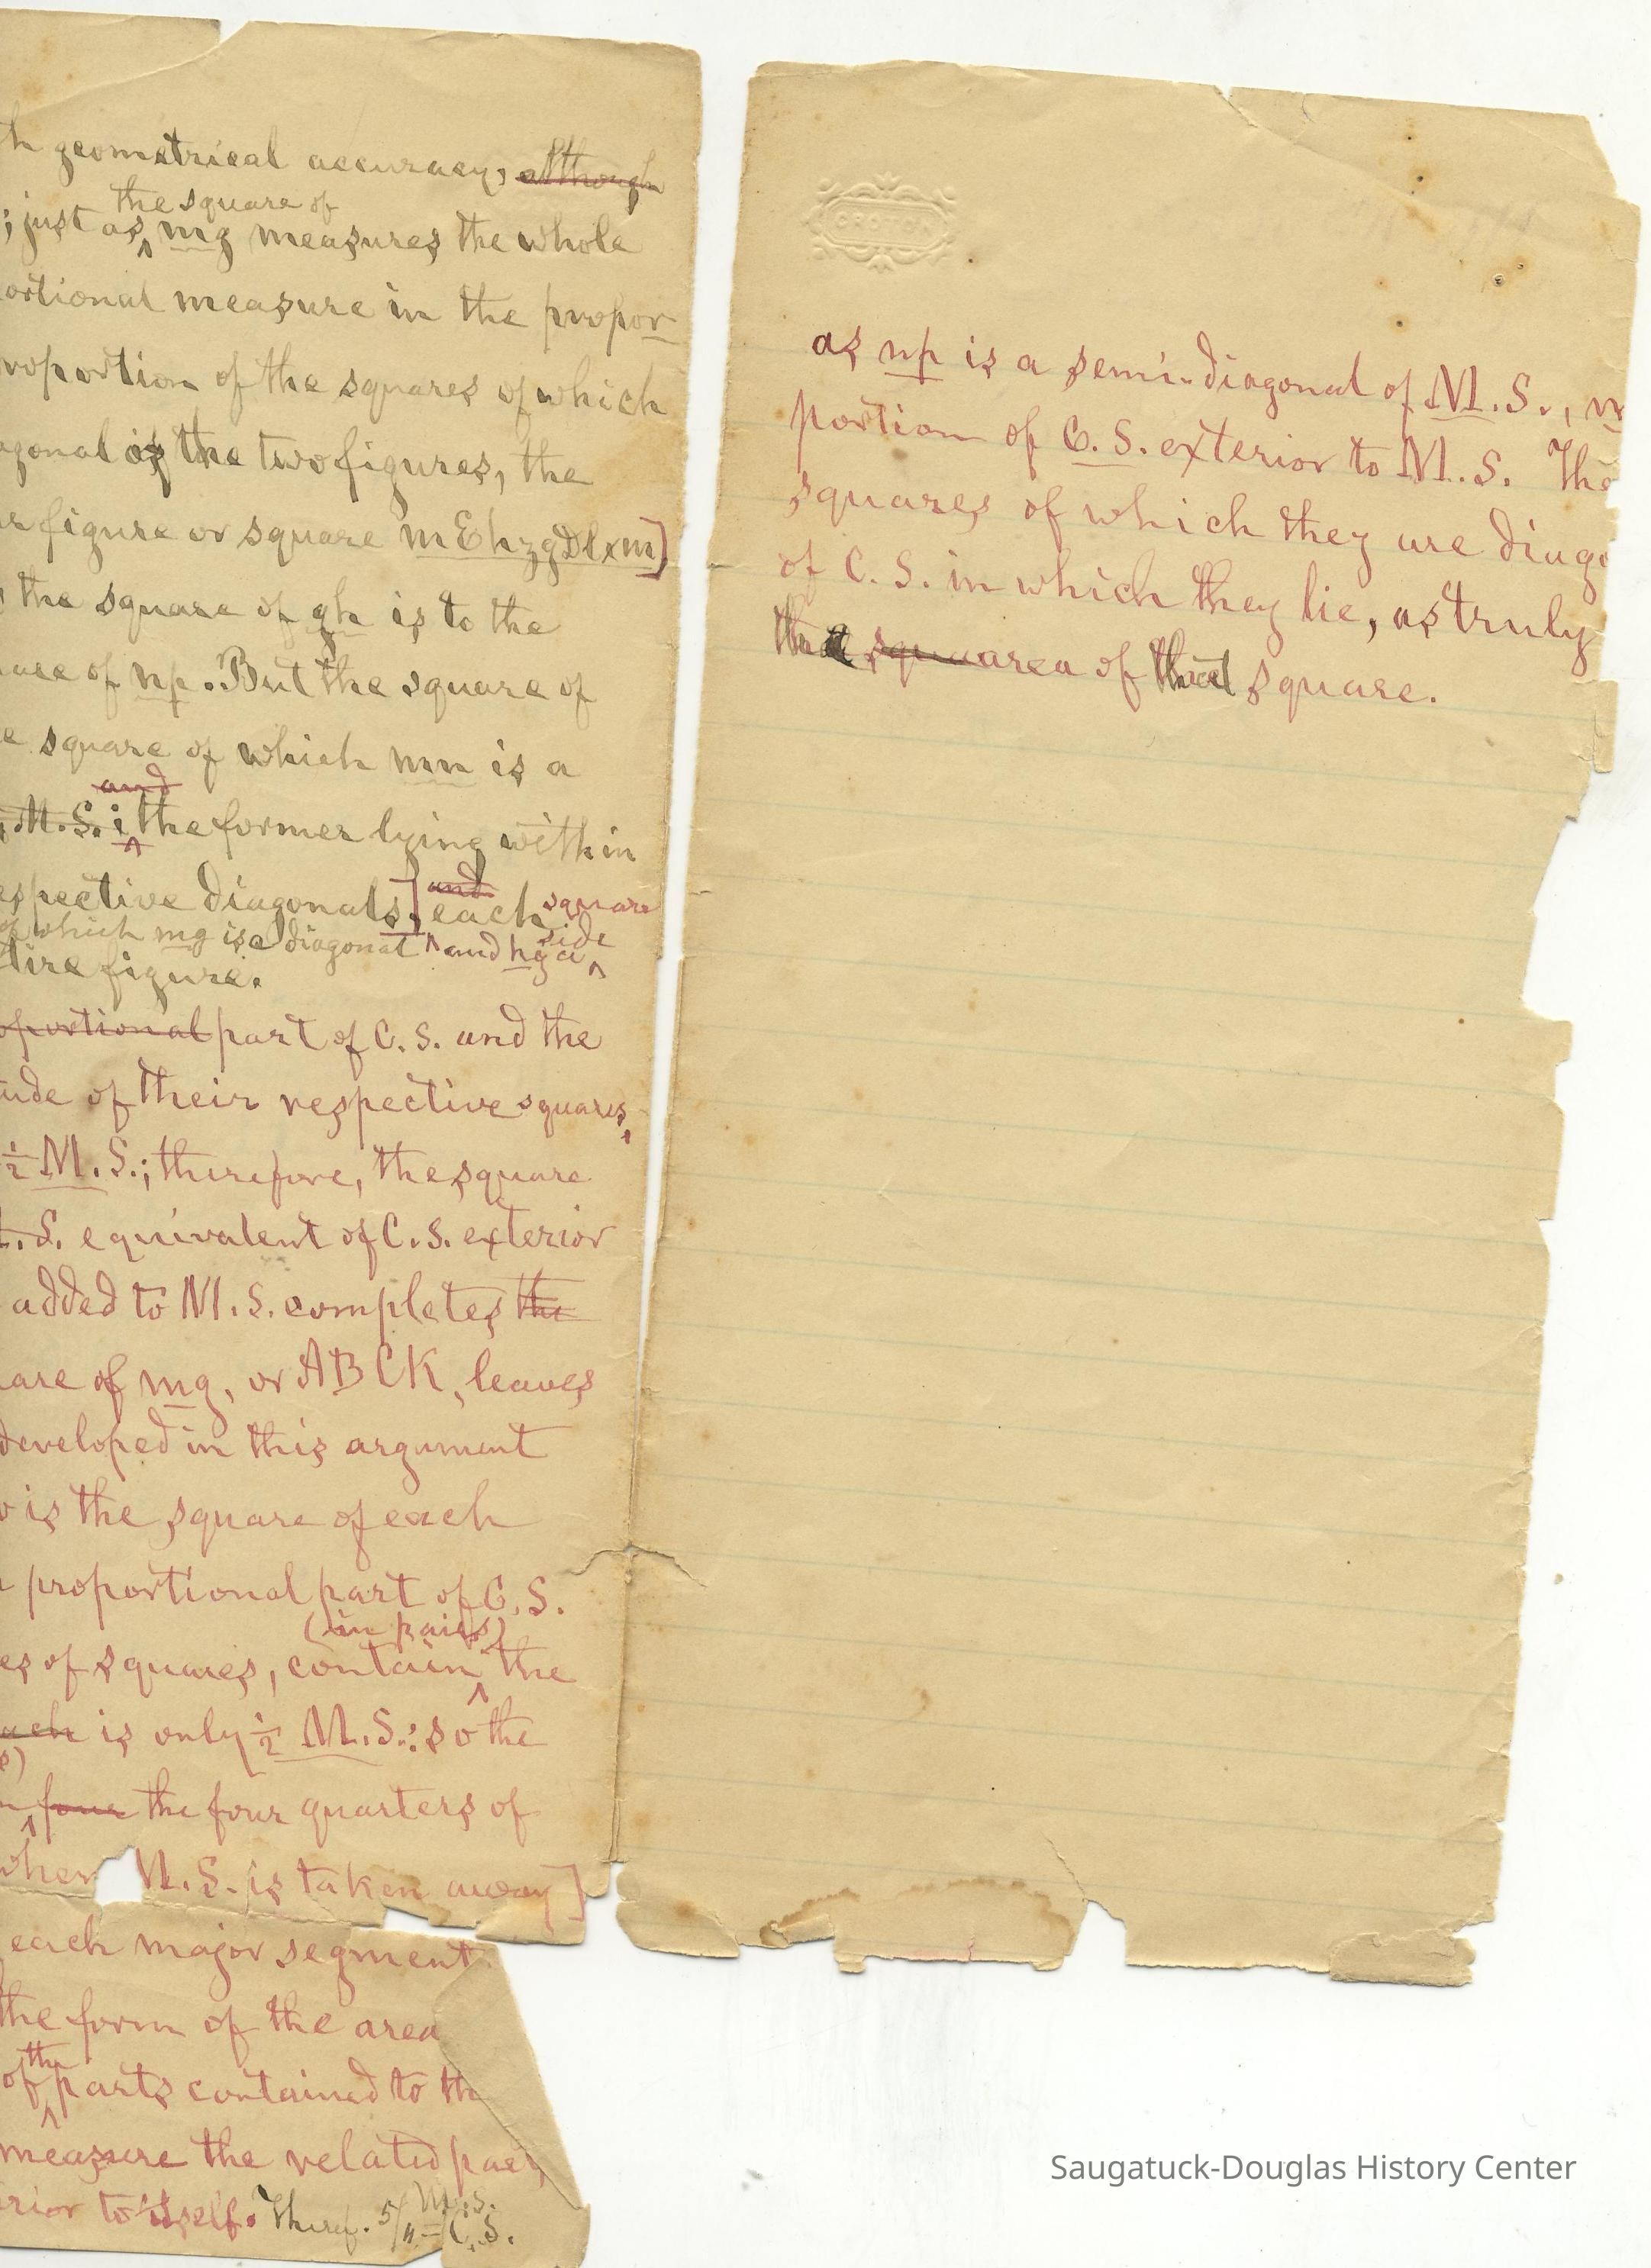 th geometrical accuracy, although
the square of
; just as mg measures the whole
ortional measure in the propor-
roportion of the squares of which
agonal of the two figures, the
figure or square mEhzgDlxm]
the square of gh is to the
uare of np. But the square of
e square of which mn is a
and
M.S. ; the former lying within
espective diagonals,] and each square
of which mg is a diagonal and hg a side
tire figure.
oportional part of C.S. and the
ude of their respective squares,
½ M.S.; therefore, the square
.S. equivalent of C.S. exterior
added to M.S. completes the
uare of mg, or ABCK, leaves
developed in this argument
is the square of each
proportional part of C.S.
(in pairs)
es of squares, contain the
each is only ½ M.S.: so the
s)
four the four quarters of
when M.S. is taken away]
each major segment
the form of the area
the
of parts contained to the
measure the related par
rior to itself. Theref. 5/11 = M.S./C.S.
CROTON
as np is a semi-diagonal of M.S.,
portion of C.S. exterior to M.S. The
squares of which they are diago
of C.S. in which they lie, as truly
the squa area of that square.
Saugatuck-Douglas History Center